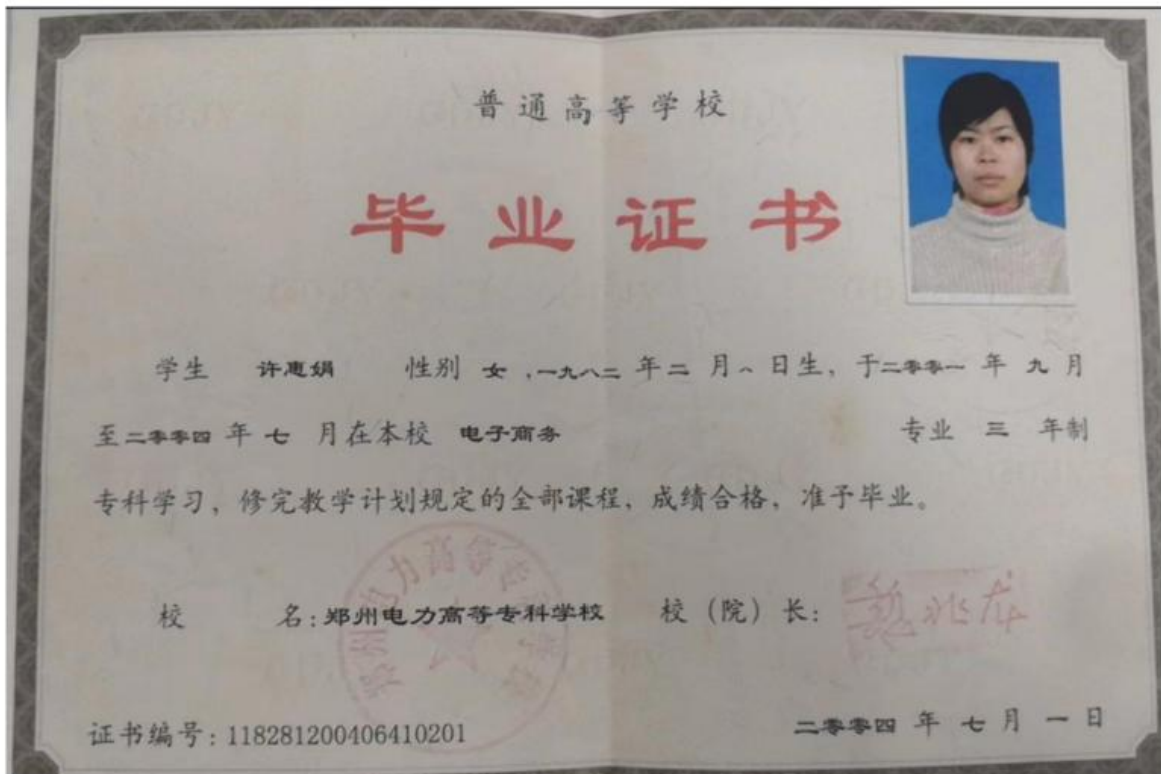 普通高等学校
毕业证书
学生 许惠娟 性别 女,一九八二 年 二 月 八 日生,于二零零一 年 九 月
至二零零四 年 七 月在本校 电子商务 专业 三 年制
专科学习,修完教学计划规定的全部课程,成绩合格,准予毕业。
校 名:郑州电力高等专科学校 校(院)长:魏兆龙
郑州电力高等专科学校
证书编号:118281200406410201 二零零四 年 七 月 一 日